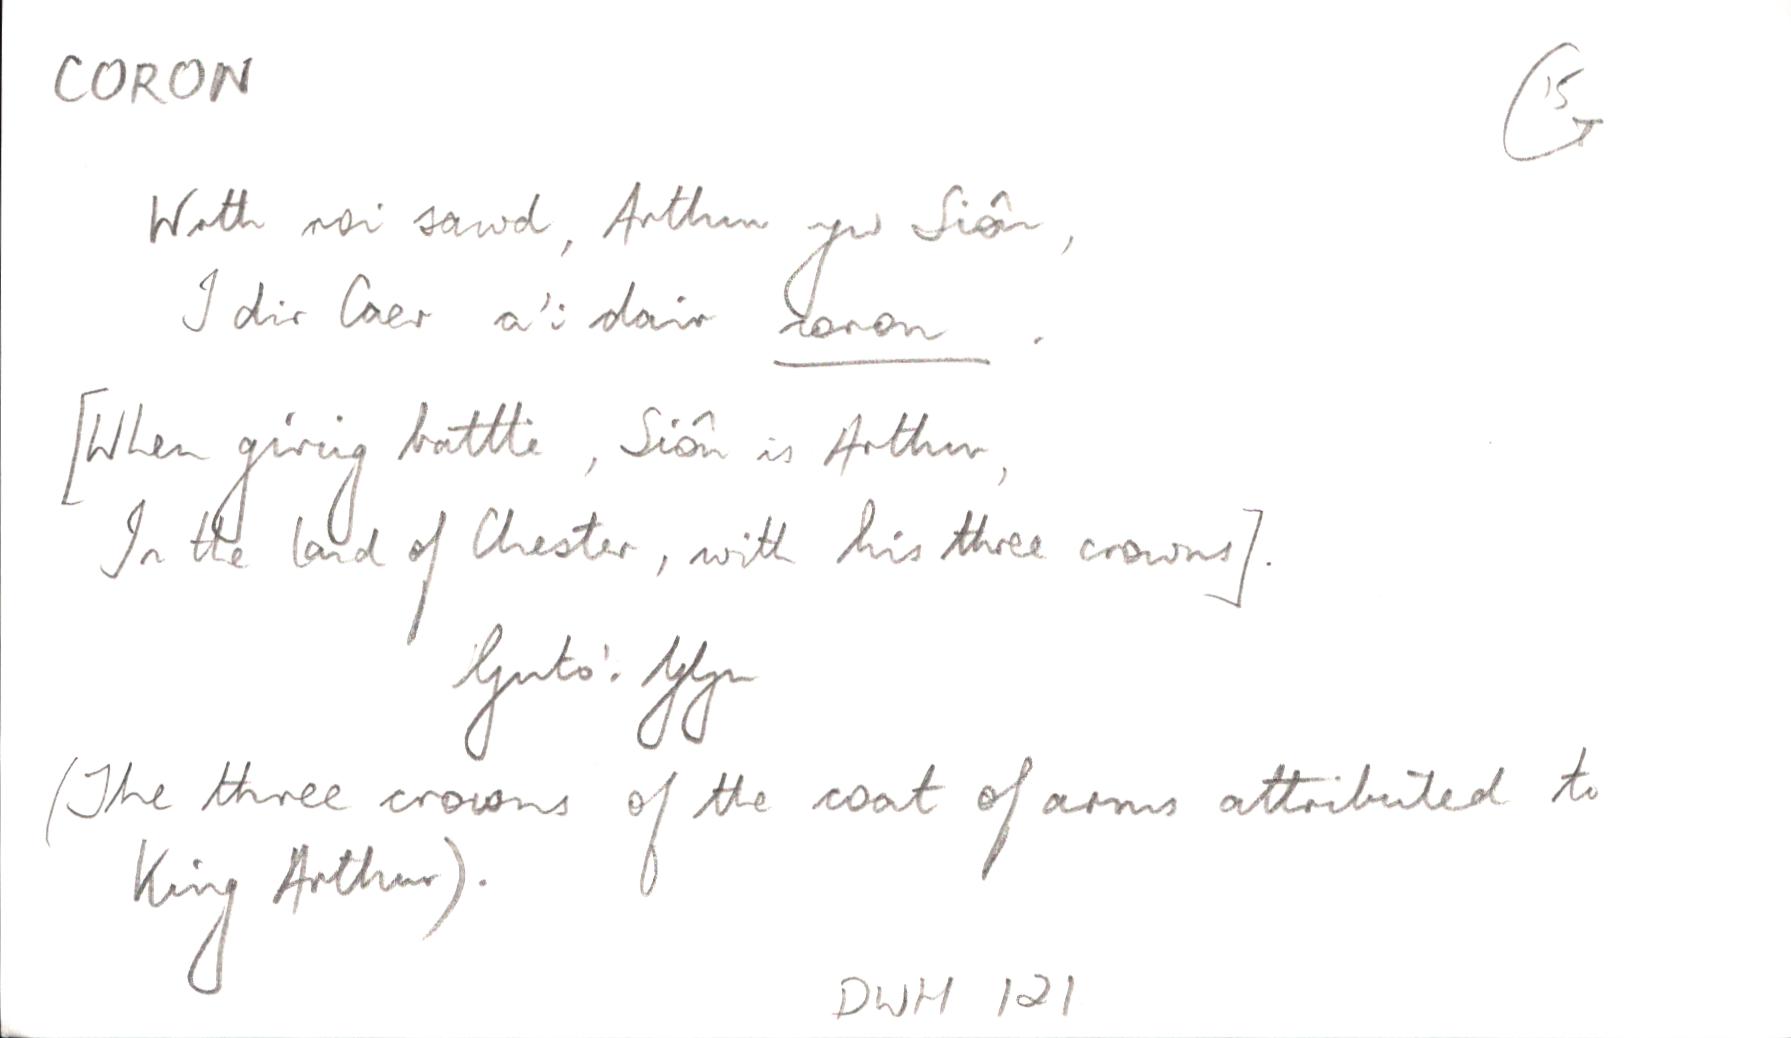 CORON
15
Wrth roi sawd, Arthur yw Siôn,
I dir Caer a'i dair coron.
[When giving battle, Siôn is Arthur,
In the land of Chester, with his three crowns].
Guto'r Glyn
(The three crowns of the coat of arms attributed to
King Arthur).
DWH 121